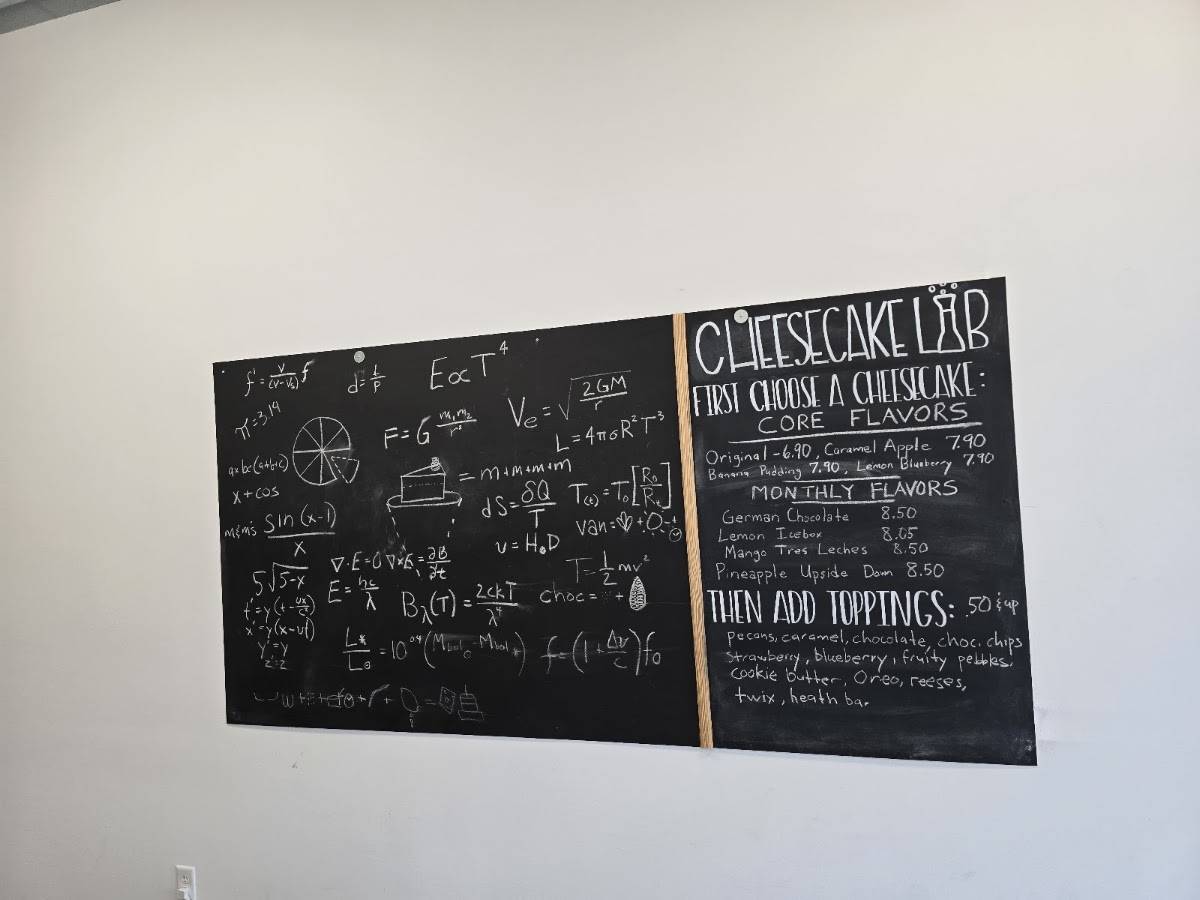 f' = v/(v-vₛ) f
d = 1/p
E ∝ T⁴
π = 3.14
F = G m₁m₂/r²
Ve = √(2GM/r)
L = 4πσR²T³
a×bc(a+b+c)
x + cos
= m+m+m+m
dS = δQ/T
T(t) = T₀[R₀/Rₜ]
m&m's sin(x-1)/x
van =
υ = H₀D
∇·E=0 ∇×E = ∂B/∂t
T = 1/2 mv²
5√5-x
E = hc/λ
Bλ(T) = 2ckT/λ⁴
choc =
t' = γ(t - ux/c²)
x' = γ(x - ut)
y' = y
z' = z
L*/L⊙ = 10^0.4 (Mbol⊙ - Mbol*)
f = (1 + Δv/c) f₀
CHEESECAKE LAB
FIRST CHOOSE A CHEESECAKE:
CORE FLAVORS
Original - 6.90, Caramel Apple 7.90
Banana Pudding 7.90, Lemon Blueberry 7.90
MONTHLY FLAVORS
German Chocolate 8.50
Lemon Icebox 8.05
Mango Tres Leches 8.50
Pineapple Upside Down 8.50
THEN ADD TOPPINGS: .50 & up
pecans, caramel, chocolate, choc. chips
strawberry, blueberry, fruity pebbles,
cookie butter, Oreo, reeses,
twix, heath bar